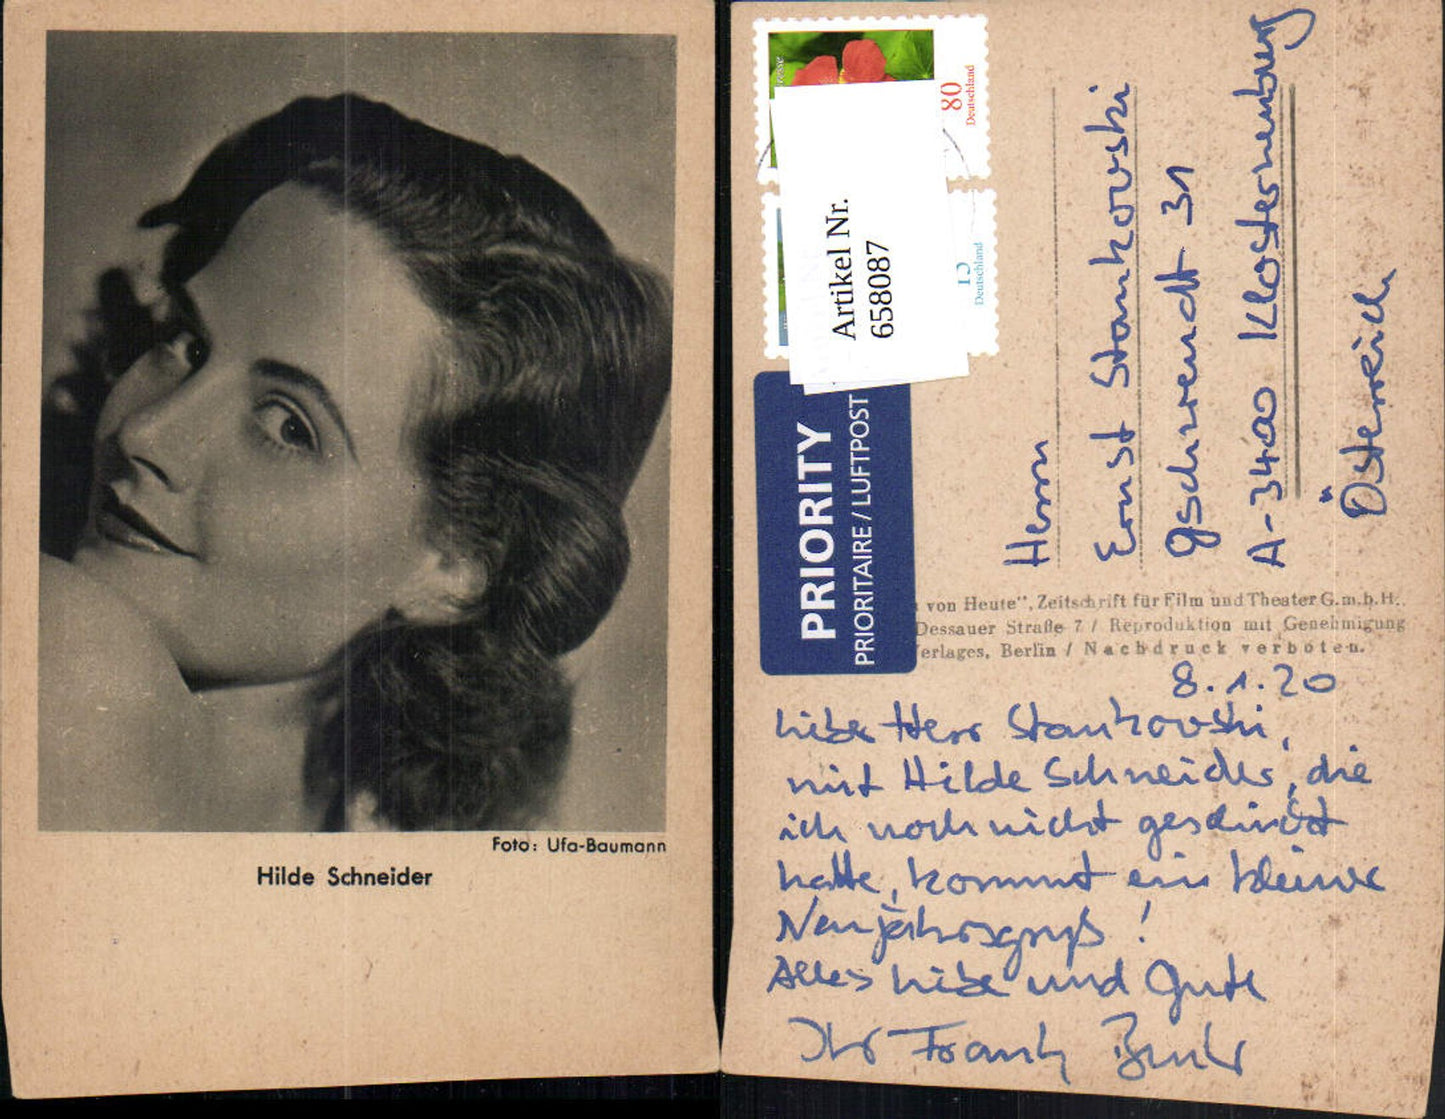 Foto: Ufa-Baumann
Hilde Schneider
80
Deutschland
Deutschland
Artikel Nr.
658087
PRIORITY
PRIORITAIRE / LUFTPOST
Herrn
Ernst Stankovski
Gschwendt 31
A-3400 Klosterneuburg
Österreich
von Heute", Zeitschrift für Film und Theater G.m.b.H.,
Dessauer Straße 7 / Reproduktion mit Genehmigung
erlages, Berlin / Nachdruck verboten.
8.1.20
Liebe Herr Stankovski,
mit Hilde Schneider, die
ich noch nicht geschickt
hatte, kommt ein kleiner
Neujahrsgruß!
Alles Liebe und Gute
Ihr Frank